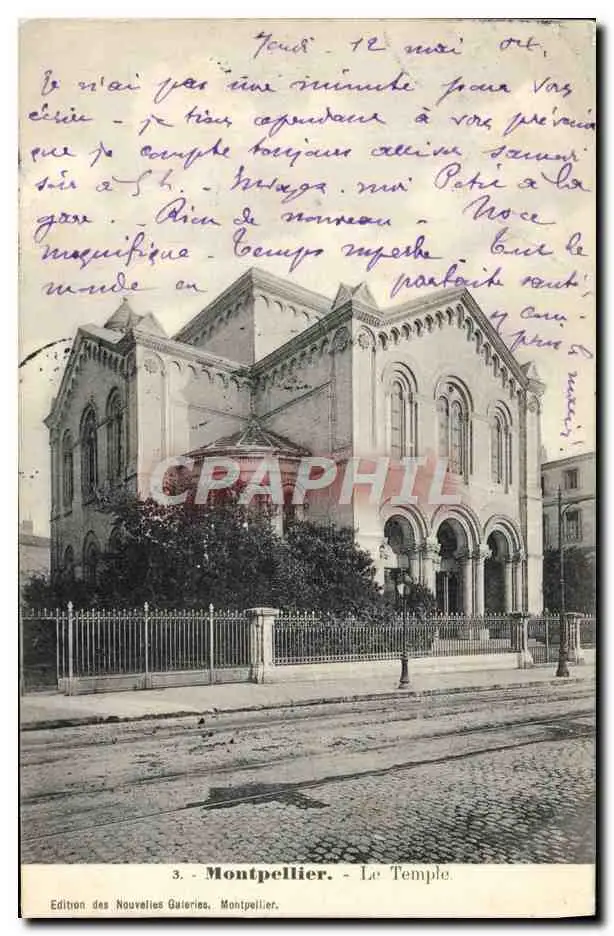 Jeudi 12 mai
Je n'ai pas une minute pour vous
écrire - je tiens cependant à vous prévenir
que je compte toujours samedi
soir à 5h.
gare. Rien de nouveau - Noce
magnifique. Temps superbe. Tout le
monde en parfaite santé
CPA
CRAPHIL
3. - Montpellier. - Le Temple.
Edition des Nouvelles Galeries. Montpellier.